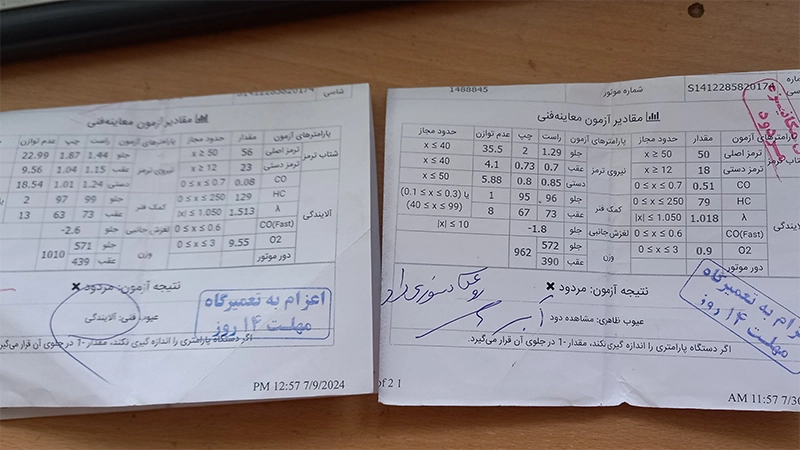 S1412285820174
شاسی
مقادیر آزمون معاینه‌فنی
پارامترهای آزمون مقدار حدود مجاز پارامترهای آزمون راست چپ عدم توازن
شتاب ترمز ترمز اصلی 56 x ≥ 50 نیروی ترمز جلو 1.44 1.87 22.99
ترمز دستی 23 x ≥ 12 عقب 1.15 1.04 9.56
آلایندگی CO 0.08 0 ≤ x ≤ 0.7 دستی 1.24 1.01 18.54
HC 129 0 ≤ x ≤ 250 کمک فنر جلو 99 97 2
λ 1.513 |x| ≤ 1.050 عقب 73 63 13
CO(Fast) 0 ≤ x ≤ 0.6 لغزش جانبی جلو -2.6
O2 9.55 0 ≤ x ≤ 3 وزن جلو 571 1010
دور موتور عقب 439
نتیجه آزمون: مردود ✖
عیوب فنی: آلایندگی
اعزام به تعمیرگاه
مهلت ۱۴ روز
اگر دستگاه پارامتری را اندازه گیری نکند، مقدار 1- در جلوی آن قرار می‌گیرد
PM 12:57 7/9/2024
S1412285820174 شماره موتور 1488845
مقادیر آزمون معاینه‌فنی
مردود
پارامترهای آزمون مقدار حدود مجاز پارامترهای آزمون راست چپ عدم توازن حدود مجاز
ترمز ترمز اصلی 50 x ≥ 50 نیروی ترمز جلو 1.29 2 35.5 x ≤ 40
ترمز دستی 18 x ≥ 12 عقب 0.7 0.73 4.1 x ≤ 40
آلایندگی CO 0.51 0 ≤ x ≤ 0.7 دستی 0.85 0.8 5.88 x ≤ 50
HC 79 0 ≤ x ≤ 250 کمک فنر جلو 96 95 1 (0.1 ≤ x ≤ 0.3) یا
λ 1.018 |x| ≤ 1.050 عقب 73 67 8 (40 ≤ x ≤ 99)
CO(Fast) 0 ≤ x ≤ 0.6 لغزش جانبی جلو -1.8 |x| ≤ 10
O2 0.9 0 ≤ x ≤ 3 وزن جلو 572 962
دور موتور عقب 390
نتیجه آزمون: مردود ✖
عیوب ظاهری: مشاهده دود
اعزام به تعمیرگاه
مهلت ۱۴ روز
اگر دستگاه پارامتری را اندازه گیری نکند، مقدار 1- در جلوی آن قرار می‌گیرد.
of 2 1
AM 11:57 7/30